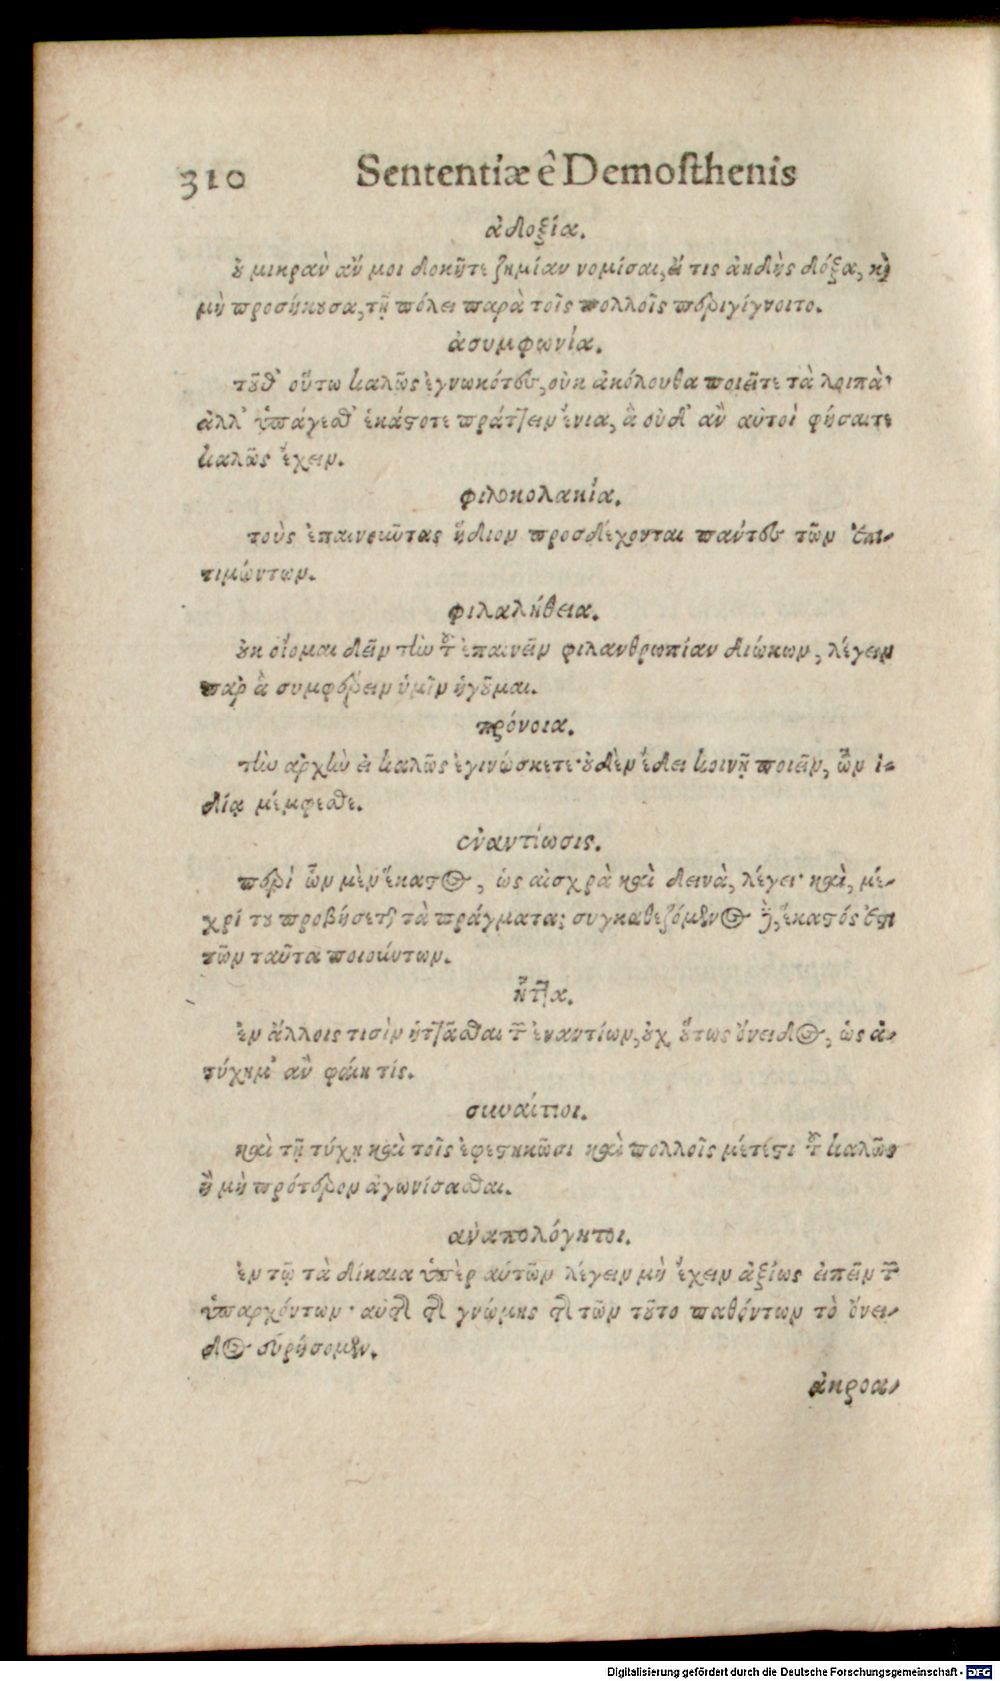 310 Sententiæ ê Demosthenis
ἀδοξία.
οὐ μικρὰν ἄν μοι δοκῆτε ζημίαν νομίσαι, εἴ τις ἀηδὴς δόξα, καὶ
μὴ προσήκουσα, τῇ πόλει παρὰ τοῖς πολλοῖς περιγίγνοιτο.
ἀσυμφωνία.
τοῦθ' οὕτω καλῶς ἐγνωκότες, οὐκ ἀκόλουθα ποιεῖτε τὰ λοιπὰ·
ἀλλ' ὑπάγεσθ' ἑκάστοτε πράττειν ἔνια, ἃ οὐδ' ἂν αὐτοὶ φήσαιτε
καλῶς ἔχειν.
φιλοκολακία.
τοὺς ἐπαινοῦντας ἥδιον προσδέχονται πάντες τῶν ἐπι-
τιμώντων.
φιλαλήθεια.
οὐκ οἴομαι δεῖν τὴν τοῦ ἐπαινεῖν φιλανθρωπίαν διώκων, λέγειν
παρ' ἃ συμφέρειν ὑμῖν ἡγοῦμαι.
πρόνοια.
τὴν ἀρχὴν εἰ καλῶς ἐγινώσκετε· οὐδὲν ἔδει κοινῇ ποιεῖν, ὧν ἰ-
δίᾳ μέμφεσθε.
ἐναντίωσις.
περὶ ὧν μὲν ἕκαστος, ὡς αἰσχρὰ καὶ δεινὰ, λέγει· καὶ, μέ-
χρί του προβήσεται τὰ πράγματα; συγκαθεζόμενος δὲ, ἕκαστός ἐστι
τῶν ταῦτα ποιούντων.
ἧττα.
ἐν ἄλλοις τισὶν ἡττᾶσθαι τῶν ἐναντίων, οὐχ οὕτως ὄνειδος, ὡς ἀ-
τύχημ' ἂν φαίη τίς.
συναίτιοι.
καὶ τῇ τύχῃ καὶ τοῖς ἐφεστηκῶσι καὶ πολλοῖς μέτεστι τοῦ καλῶς
ἢ μὴ πρότερον ἀγωνίσασθαι.
ἀναπολόγητοι.
ἐν τῷ τὰ δίκαια ὑπὲρ αὑτῶν λέγειν μὴ ἔχειν ἀξίως εἰπεῖν τῶν
ὑπαρχόντων· αὐτῆς τῆς γνώμης τῆς τῶν τοῦτο παθόντων τὸ ὄνει-
δος εὑρήσομεν.
ἀκροα-
Digitalisierung gefördert durch die Deutsche Forschungsgemeinschaft - DFG